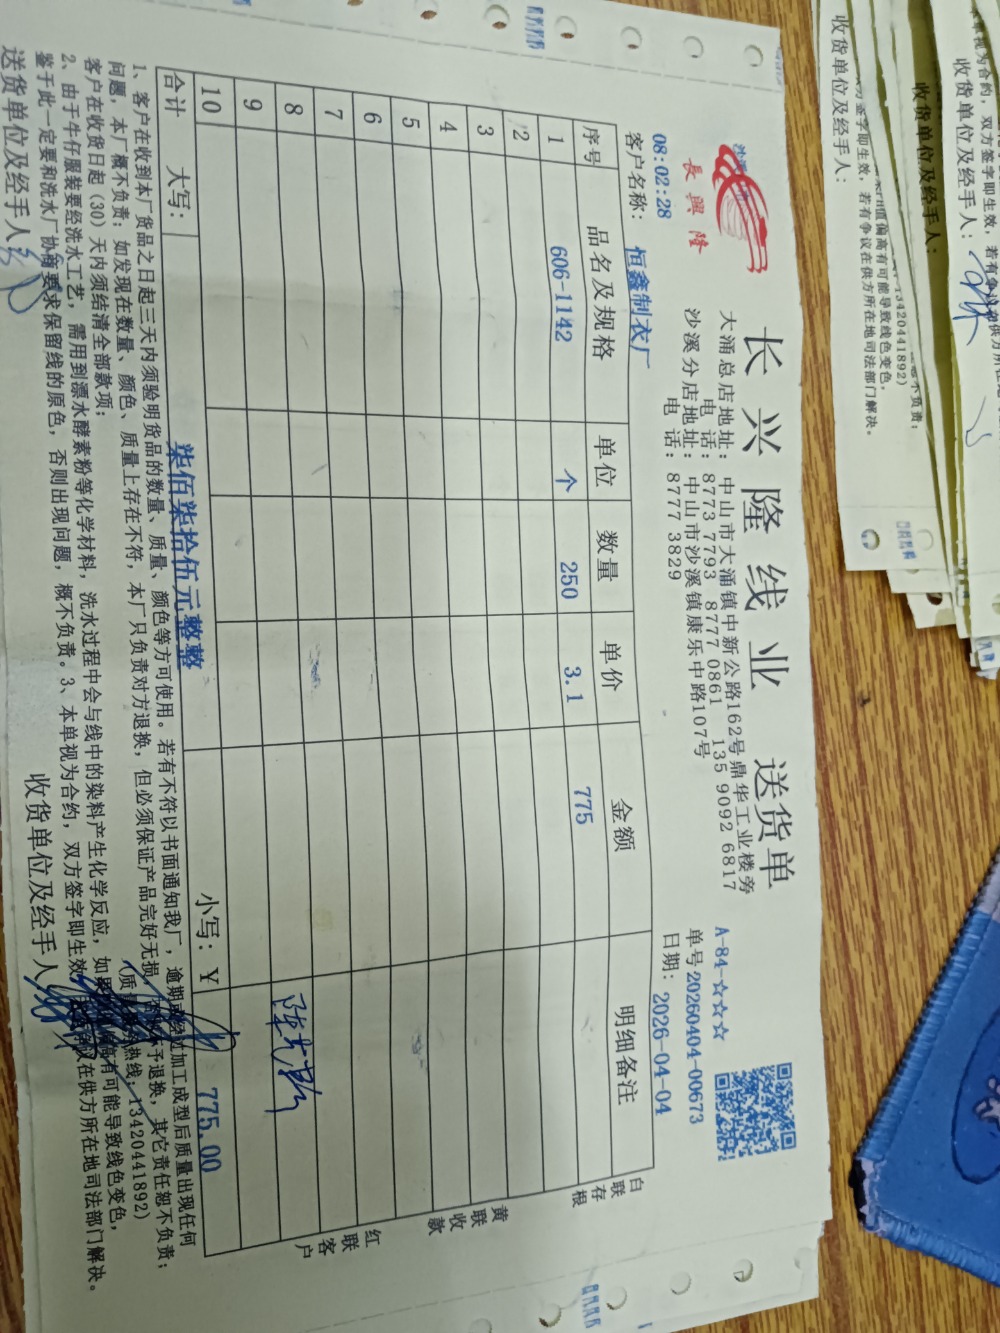 长兴隆线业 送货单
長興隆
大涌总店地址：中山市大涌镇中新公路162号鼎华工业楼旁
电话：8773 7793 8777 0861 135 9092 6817
沙溪分店地址：中山市沙溪镇康乐中路107号
电话：8777 3829
A-84-☆☆☆☆
单号 20260404-00673
08:02:28
日期：2026-04-04
客户名称：恒鑫制衣厂
序号 品名及规格 单位 数量 单价 金额 明细备注
1 606-1142 个 250 3.1 775
2
3
4
5
6
7
8
9
10
合计 大写：柒佰柒拾伍元整整 小写：￥ 775.00
白联存根
黄联收款
红联客户
1、客户在收到本厂货品之日起三天内须验明货品的数量、质量、颜色等方可使用。若有不符以书面通知我厂，逾期或经过加工成型后质量出现任何
问题，本厂概不负责；如发现在数量、颜色、质量上存在不符，本厂只负责对方退换，但必须保证产品完好无损，予退换，其它责任恕不负责；
客户在收货日起（30）天内须结清全部款项； 热线：13420441892）
2、由于牛仔服装要经洗水工艺，需用到漂水酵素粉等化学材料，洗水过程中会与线中的染料产生化学反应，如果有可能导致线色变色，
鉴于此一定要和洗水厂协商要求保留线的原色，否则出现问题，概不负责。3、本单视为合约，双方签字即生效，议在供方所在地司法部门解决。
送货单位及经手人
收货单位及经手人
值偏高有可能导致线色变色，
签字即生效，若有争议在供方所在地司法部门解决。
收货单位及经手人：
收货单位及经手人：
视为合约，双方签字即生效，若有争议
收货单位及经手人：